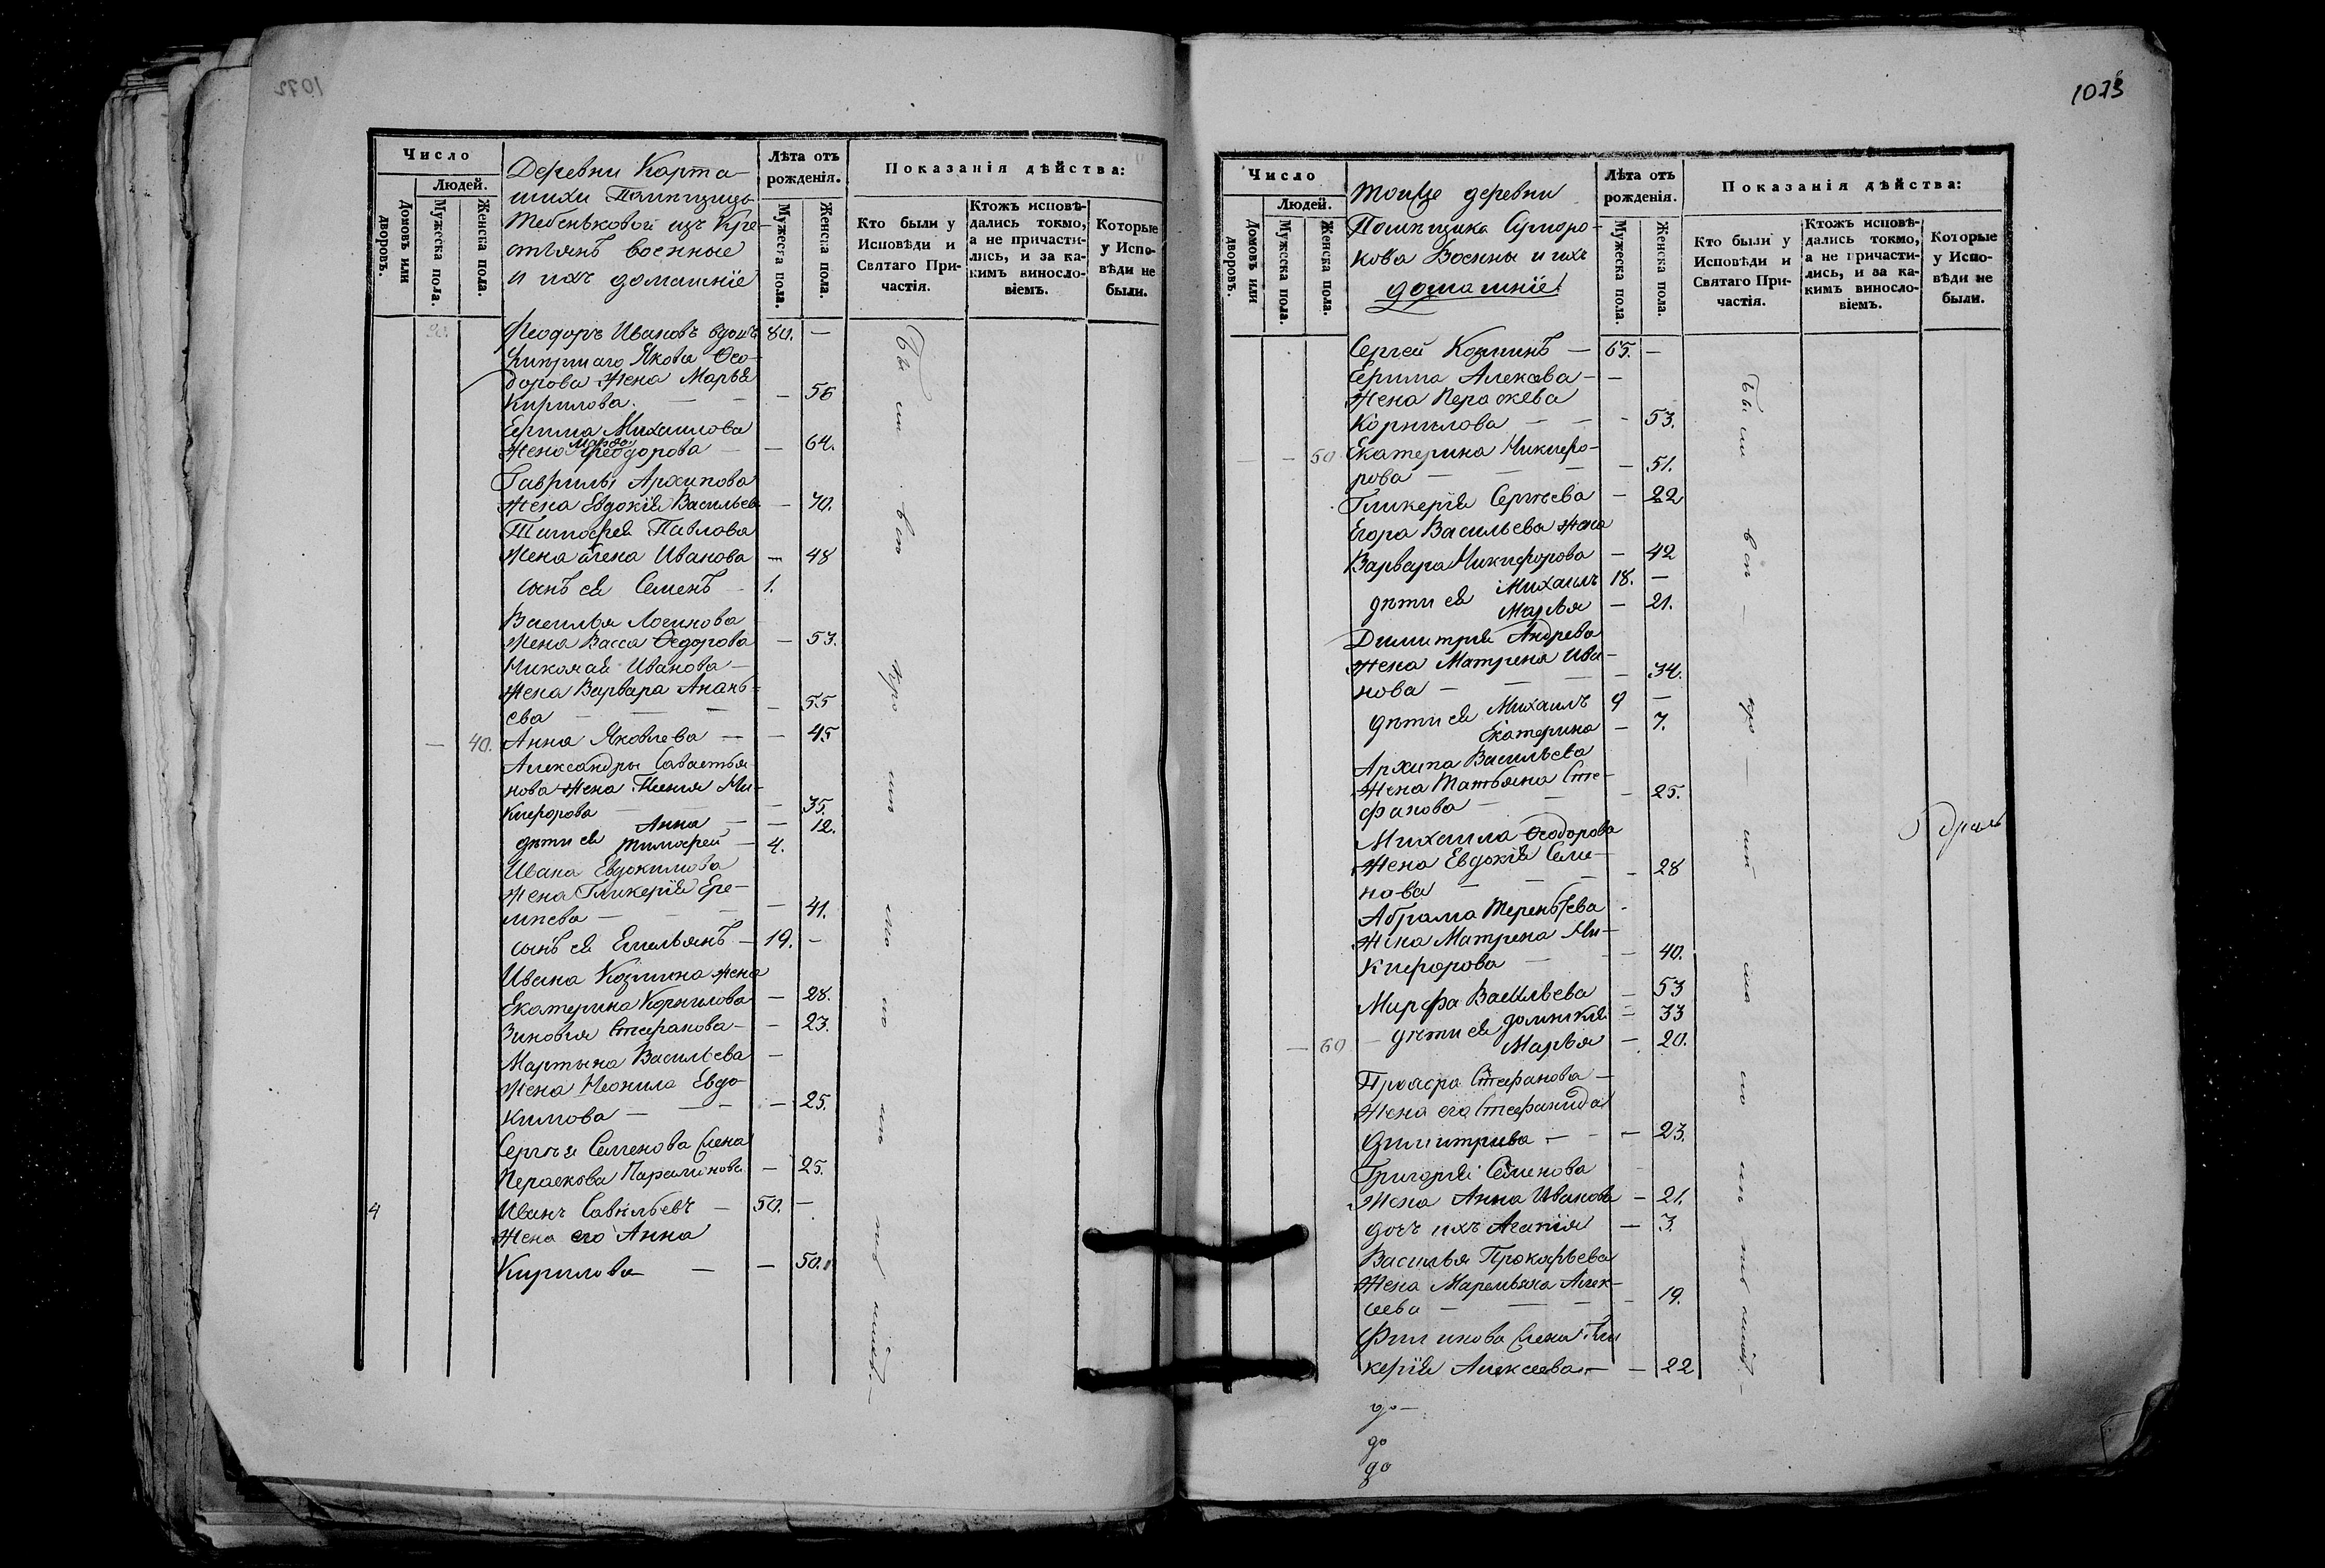 1072
Число
Людей.
Домовъ или дворовъ.
Мужеска пола.
Женска пола.
Деревни Карта-
шихи Помѣщицы
Тебеньковой изъ Кре-
стьянъ военные
и ихъ домашніе
Лѣта отъ рожденія.
Мужеска пола.
Женска пола.
Показанія дѣйства:
Кто были у Исповѣди и Святаго При-
частія.
Ктожъ исповѣ-
дались токмо,
а не причасти-
лись, и за ка-
кимъ винosло-
віемъ.
Которые
у Испо-
вѣди не
были.
Ѳеодоръ Ивановъ вдовъ 80. —
Якова Ѳео-
дорова жена Марья
Кирилова. — — — 56
Ефима Михаилова
жена Марфа Ѳеодорова — — 64.
Гаврилы Архипова
жена Евдокія Васильева — 70.
Тимофея Павлова
жена Елена Иванова — 48
сынъ ея Семенъ — 1.
Василья Логинова
жена Васса Ѳедорова — 53.
Николая Иванова —
жена Варвара Анань-
ева — — — — 55
— 40. Анна Яковлева — — 45
Александры Саваетья
нова жена Ми-
кифорова — — 35.
дѣти ея Анна — — 12.
Тимофей — 4.
Ивана Евдокимова
жена Гликерія Ере-
мѣева — — — — 41.
сынъ ея Емельянъ — 19. —
Ивана Козмина жена
Екатерина Корнилова — 28.
Зиновья Стефанова — — 23.
Мартына Васильева —
жена Неонила Евдо-
кимова — — — — 25.
Сергѣя Семенова жена
Пераскова Парамонова — 25.
4 Иванъ Савельевъ — 50. —
жена его Анна
Кирилова — — 50.
Были вси кро ни
1073
Число
Людей.
Домовъ или дворовъ.
Мужеска пола.
Женска пола.
тойже деревни
Помѣщика Сумаро-
кова Военны и ихъ
домашніе
Лѣта отъ рожденія.
Мужеска пола.
Женска пола.
Показанія дѣйства:
Кто были у
Исповѣди и
Святаго При-
частія.
Ктожъ исповѣ-
дались токмо,
а не причасти-
лись, и за ка-
кимъ винosло-
віемъ.
Которые
у Испо-
вѣди не
были.
Сергей Козминъ — 65. —
Ефима Алексева — —
жена Пераскева
Корнилова — — — 53.
— — 50. Екатерина Никифо-
рова — — — — 51.
Гликерія Сергѣева — 22
Егора Васильева жена
Варвара Никифорова — 42
дѣти ея Михаилъ 18. —
Марья — 21.
Димитрия Андрева
жена Матрена Ива-
нова — — — 34.
дѣти ея Михаилъ 9 —
Екатерина — 7.
Архипа Васильева
жена Татьяна Сте-
фанова — — — 25.
Михаила Ѳеодорова
жена Евдокія Семе-
нова — — — — 28
Абрама Терентьева —
жена Матрена Ни-
кифорова — — 40.
Марфа Васильева — 53
дѣти ея Домникія — 33
— 60 Марья — 20.
Стефанова —
жена его Стефанида
Димитриева — — — 23.
Григорія Семенова
жена Анна Иванова — 21.
дочь ихъ Агапія — 3.
Василья Прокофьева
жена Маремьяна Алек-
сеева — — — — 19.
Филипова жена Гли
керія Алексеева — — 22
до —
до
до